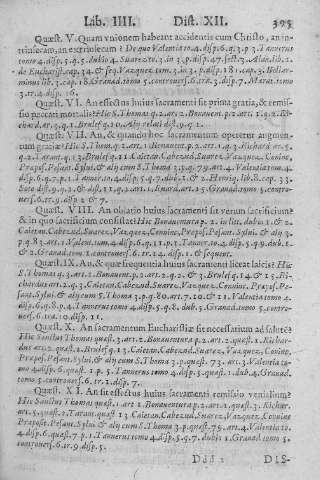 Lib. IIII. Dist. XII. 395
Quæst. V. Quam vnionem habeant accidentis cum Christo, an in-
trinsecam, an extrinsecam? De quo Valentia to.4. disp.6. q.3. p.3. Tannerus
tomo 4. disp.5. q.5. dubio 4. Suarez to.3. in 3. p. disp.47. sect.3. Alan. lib.1.
de Eucharist. cap.34. Vazquez tom.3. in 3. p. disp. cap.3. Bellar-
minus lib.3. cap. Granad. tom.5. controuers.6. tra.3. disp.7. Marat. tomo
3. tr.4. disp.16.
Quæst. VI. An effectus huius sacramenti sit prima gratia, & remis-
sio peccati mortalis? Hic S. Thomas q.2. ar.2. Bonauent. p.2. ar.1. q.2. Ri-
chard. ar.3. q.1. Brulef. q.10. Alij relati disp.9. q.2.
Quæst. VII. An, & quando hoc sacramentum operetur augmen-
tum gratiæ? Hic S. Thom. q.2. art.1. Bonauent. p.2. art.1. q.3. Richard. ar.5.
q.2. Taran. q.13. Brulef. q.11. Caietan. Cabezud. Suarez. Vazquez. Coninc.
Præpos. Pesant. Syluius, & alij cum S. Thoma 3. p. q.79. art.1. Valentia tom.4.
disp.6. q.7. p.1. Tannerus to.4. disp.5. q.9. dubio 1. & 2. Henriq. lib.8. cap.
Soto dist.9. q.2. & dist.11. q.2. ar.1. Ismard. ar.15. Granad. tomo 5. contro-
uers.6. tr.9. disp.2. & 7.
Quæst. VIII. An oblatio huius sacramenti sit verum sacrificium?
& in quo sacrificium consistat? Hic Bonauentura p.2. in litt. dubio 1. & 2.
Caietan. Cabezud. Suarez. Vazquez. Coninc. Præpos. Pesant. Syluius, & alij 3.
p. q.83. art.1. Valent. tom.4. disp.6. q.11. p.1. Tanner. to.4. disp.5. q.9. dub.1.
& 2. Granad. tom.5. controuers.6. tr.14. disp.1. & sequent.
Quæst. IX. An, & quæ frequentia huius sacramenti liceat laicis? Hic
S. Thomas q.3. art.1. Bonauent. p.2. art.2. q.2. & 3. Brulef. q.14. & 15. Ri-
chardus art.2. q.3. Caietan. Cabezud. Suarez. Vazquez. Coninc. Præpos. Pe-
sant. Syluius, & alij cum S. Thoma 3. p. q.80. art.7. 10. & 11. Valentia tomo 4.
disp.6. q.8. p.4. Tannerus tomo 4. disp.5. q.8. dub. Granad. tomo 5. contro-
uers.6. tra.10. disp.11.
Quæst. X. An sacramentum Eucharistiæ sit necessarium ad salutem?
Hic Sanctus Thomas quæst.3. art.2. Bonauentura p.2. art.2. quæst.1. Richar-
dus art.2. quæst.2. Brulef. q.13. Caietan. Cabezud. Suarez. Vazquez. Coninc.
Præpos. Pesant. Syluius, & alij cum S. Thoma 3. p. quæst. 73. art.3. Valentia to-
mo 4. disp.6. quæst.1. p.5. Tannerus tomo 4. disp.5. quæst.1. dub.4. Granad.
tomo 5. controuers.6. tr.2. disp. 7.
Quæst. XI. An sit effectus huius sacramenti remissio venialium?
Hic Sanctus Thomas quæst.2. art.1. Bonauentura p.2. art.1. quæst.3. Richar.
art.5. quæst.2. Taran. quæst.13. Caietan. Cabezud. Suarez. Vazquez. Coninc.
Præpos. Pesant. Syluius, & alij cum S. Thoma 3. p. quæst.79. art.4. Valentia to.
4. disp.6. quæst.7. p.1. Tannerus tomo 4. disp.5. q.7. dubio 1. Granad. tomo 5.
controuers.6. tr.9. disp.5.
Ddd 2 DIS-